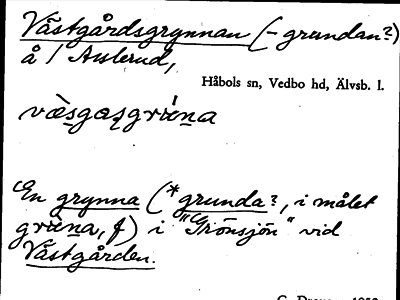 Västgårdsgrynnan (-grundan?)
å / Auslerud,
Håbols sn, Vedbo hd, Älvsb. l.
væ̀sgas̨gri̇èna
En grynna (*grunda?, i målet
grièna, f) i "Grönsjön" vid
Västgården.